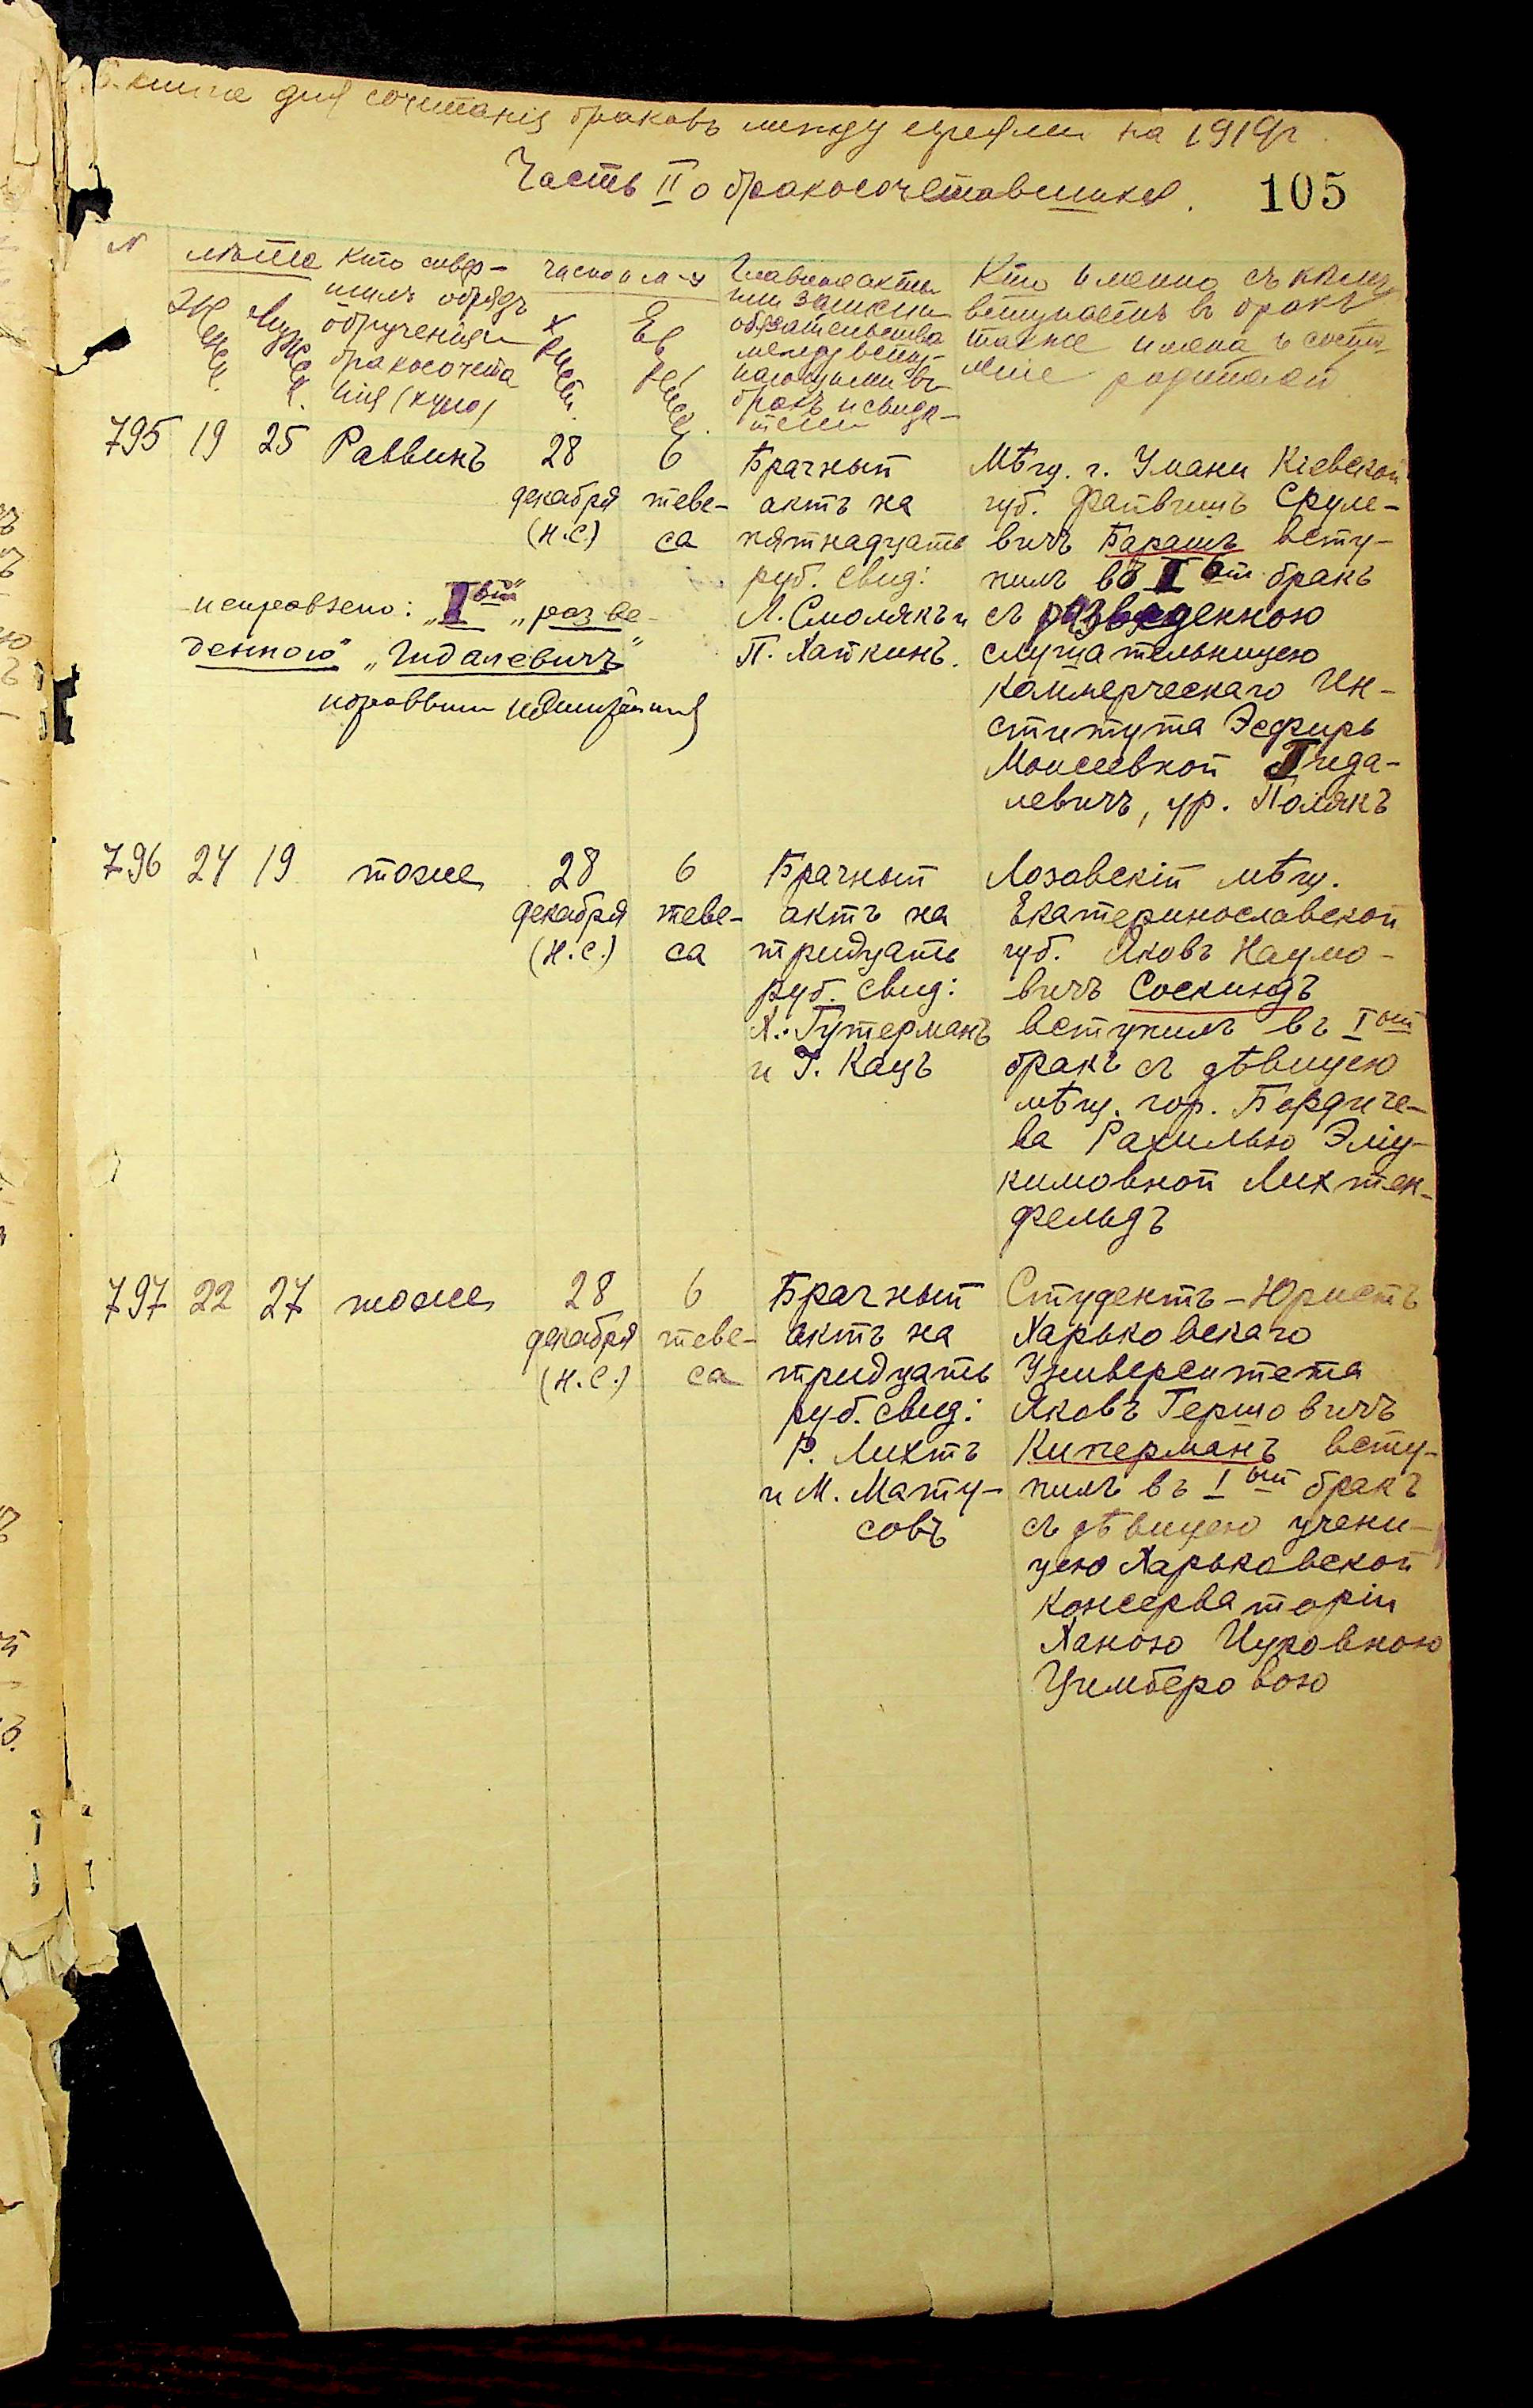 книга для сочетанія браковъ между евреями на 1919г.
Часть II о бракосочетавшихся. 105
№
лѣта
Женск.
Мужск.
Кто совер-
шилъ обрядъ
обрученія и
бракосочета
нія (хупо)
число и м-ц
Христ.
Еврейск.
Главные акты
или записи
обязательства
между всту-
пающими въ
бракъ и свидѣ-
тели
Кто именно съ кѣмъ
вступаетъ въ бракъ
также имена и состо-
яніе родителей
795 19 25 Раввинъ 28 6
декабря теве-
(н.с.) са
Брачный
актъ на
пятнадцать
руб. свид:
Л. Смолякъ и
П. Хаткинъ.
Мѣщ. г. Умани Кіевской
губ. Файвишъ Сруле-
вичъ Барашъ всту-
пилъ въ Iый бракъ
съ разведенною
слушательницею
Коммерческаго Ин-
ститута Эсфирь
Моисеевной Гида-
левичъ, ур. Полякъ
исправлено: „Iый“ „разве-
денною“ „Гидалевичъ“
796 24 19 тоже 28 6
декабря теве-
(н.с.) са
Брачный
актъ на
тридцать
руб. свид:
Х. Гутерманъ
и Г. Кацъ
Лозовскій мѣщ.
Екатеринославской
губ. Яковъ Наумо-
вичъ Соскиндъ
вступилъ въ Iый
бракъ съ дѣвицею
мѣщ. гор. Бердиче-
ва Рахилью Эліу-
кимовной Лихтен-
фельдъ
797 22 27 тоже 28 6
декабря теве-
(н.с.) са
Брачный
актъ на
тридцать
руб. свид:
Р. Лихтъ
и М. Мату-
совъ
Студентъ-Юристъ
Харьковскаго
Университета
Яковъ Гершовичъ
Киперманъ всту-
пилъ въ Iый бракъ
съ дѣвицею учени-
цею Харьковской
Консерваторіи
Ханою Цуровною
Цимберовою